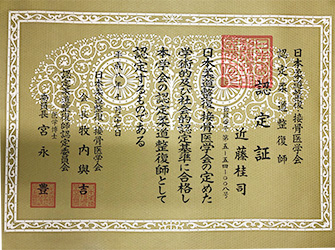 日本柔道整復・接骨医学会
認定柔道整復師
認定証
近藤桂司
日本柔道整復・接骨医学会の定めた
学術的及び社会的認定基準に合格し
本学会の認定柔道整復師として
認定するものである
平成
日本柔道整復・接骨医学会
会長 牧内與吉
認定柔道整復師認定委員会
委員長 宮永豊